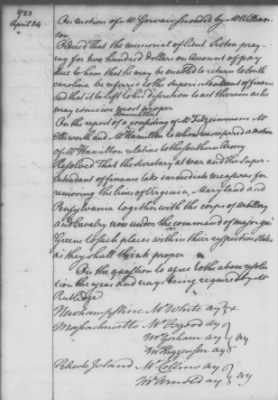 1783
April 24
On motion of Mr Gervais seconded by Mr Williamson
Ordered that the memorial of Lieut Liston praying
for two hundred dollars on Amount of pay
due to him that he may be enabled to return to South
carolina be referred to the Superintendant of finance
and that it be left to his discretion to act therein as he
may conceive most proper
On the report of a committee of Mr Fitzsimmons Mr
Elsworth and Mr Hamilton to whom was referred a motion
of Mr Hamilton relative to the southern Army
Resolved That the Secretary at war and the Super-
intendant of finance take immediate measures for
removing the lines of Virginia, Maryland and
Pensylvania together with the corps of artillery
and Cavalry now under the command of major gen
Greene to such places within their respective States
as they shall think proper
On the question to agree to the above resolu-
tion the yeas and nays being required by Mr
Rutledge
Newhampshire Mr White ay
Massachusetts Mr Osgood ay
Mr Gorham ay
Mr Higginson ay
Rhode Island Mr Collins ay
Mr Arnold ay